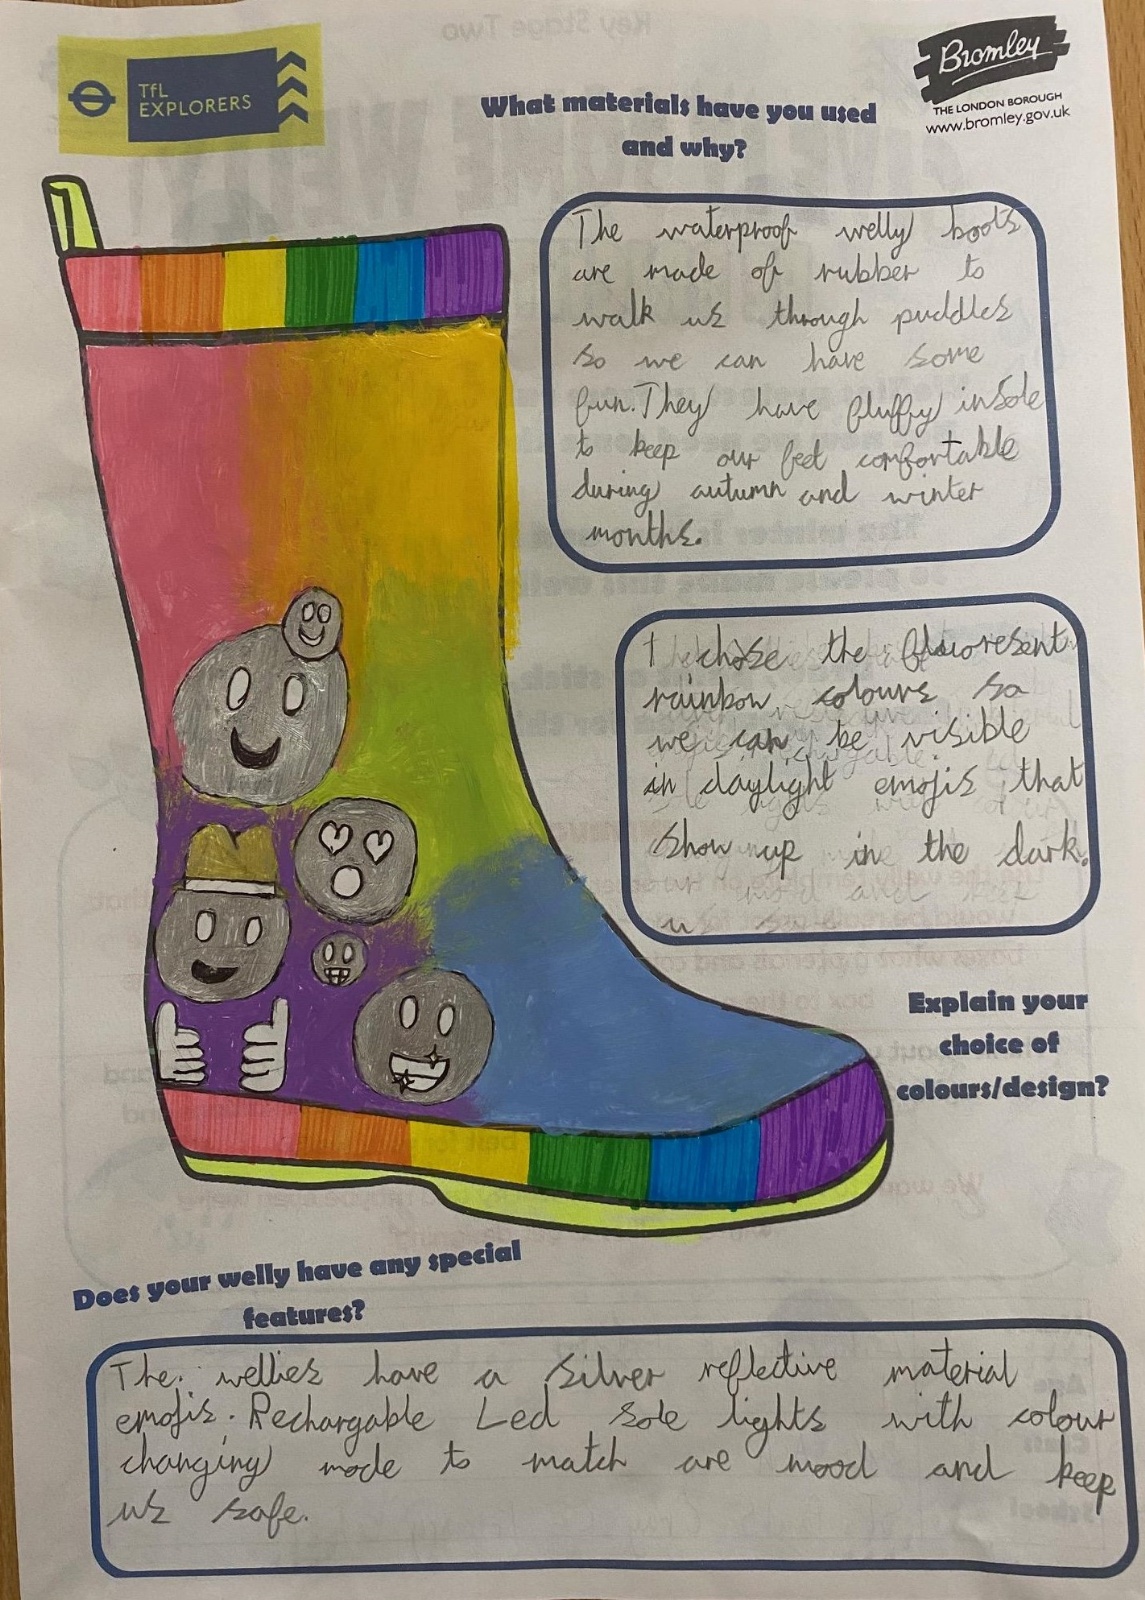 TfL
EXPLORERS
Bromley
THE LONDON BOROUGH
www.bromley.gov.uk
What materials have you used
and why?
The waterproof welly boots
are made of rubber to
walk us through puddles
so we can have some
fun. They have fluffy insole
to keep our feet comfortable
during autumn and winter
months.
I chose the fluoresent
rainbow colours so
we can be visible
in daylight emojis that
show up in the dark.
Explain your
choice of
colours/design?
Does your welly have any special
features?
The wellies have a silver reflective material
emojis. Rechargable Led sole lights with colour
changing mode to match are mood and keep
us safe.